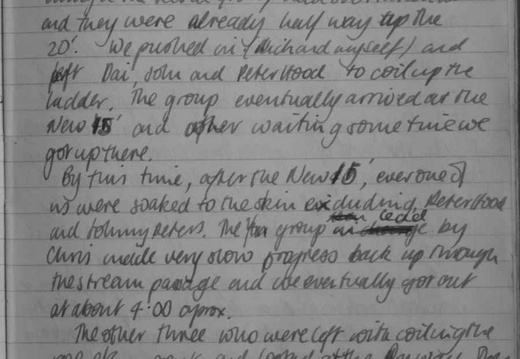 and they were already half way up the
20'. We pushed on (Richard myself) and
left Dai, John and Peter Hood to coil up the
ladder. The group eventually arrived at the
New 15' and after waiting some time we
got up there.
By this time, after the New 15', everone of
us were soaked to the skin excluding, Peter Hood
and Johnny Peters. The group led by
Chris made very slow progress back up through
the stream passage and we eventually got out
at about 4.00 aprox.
The other three who were left with coiling the
and looked at the